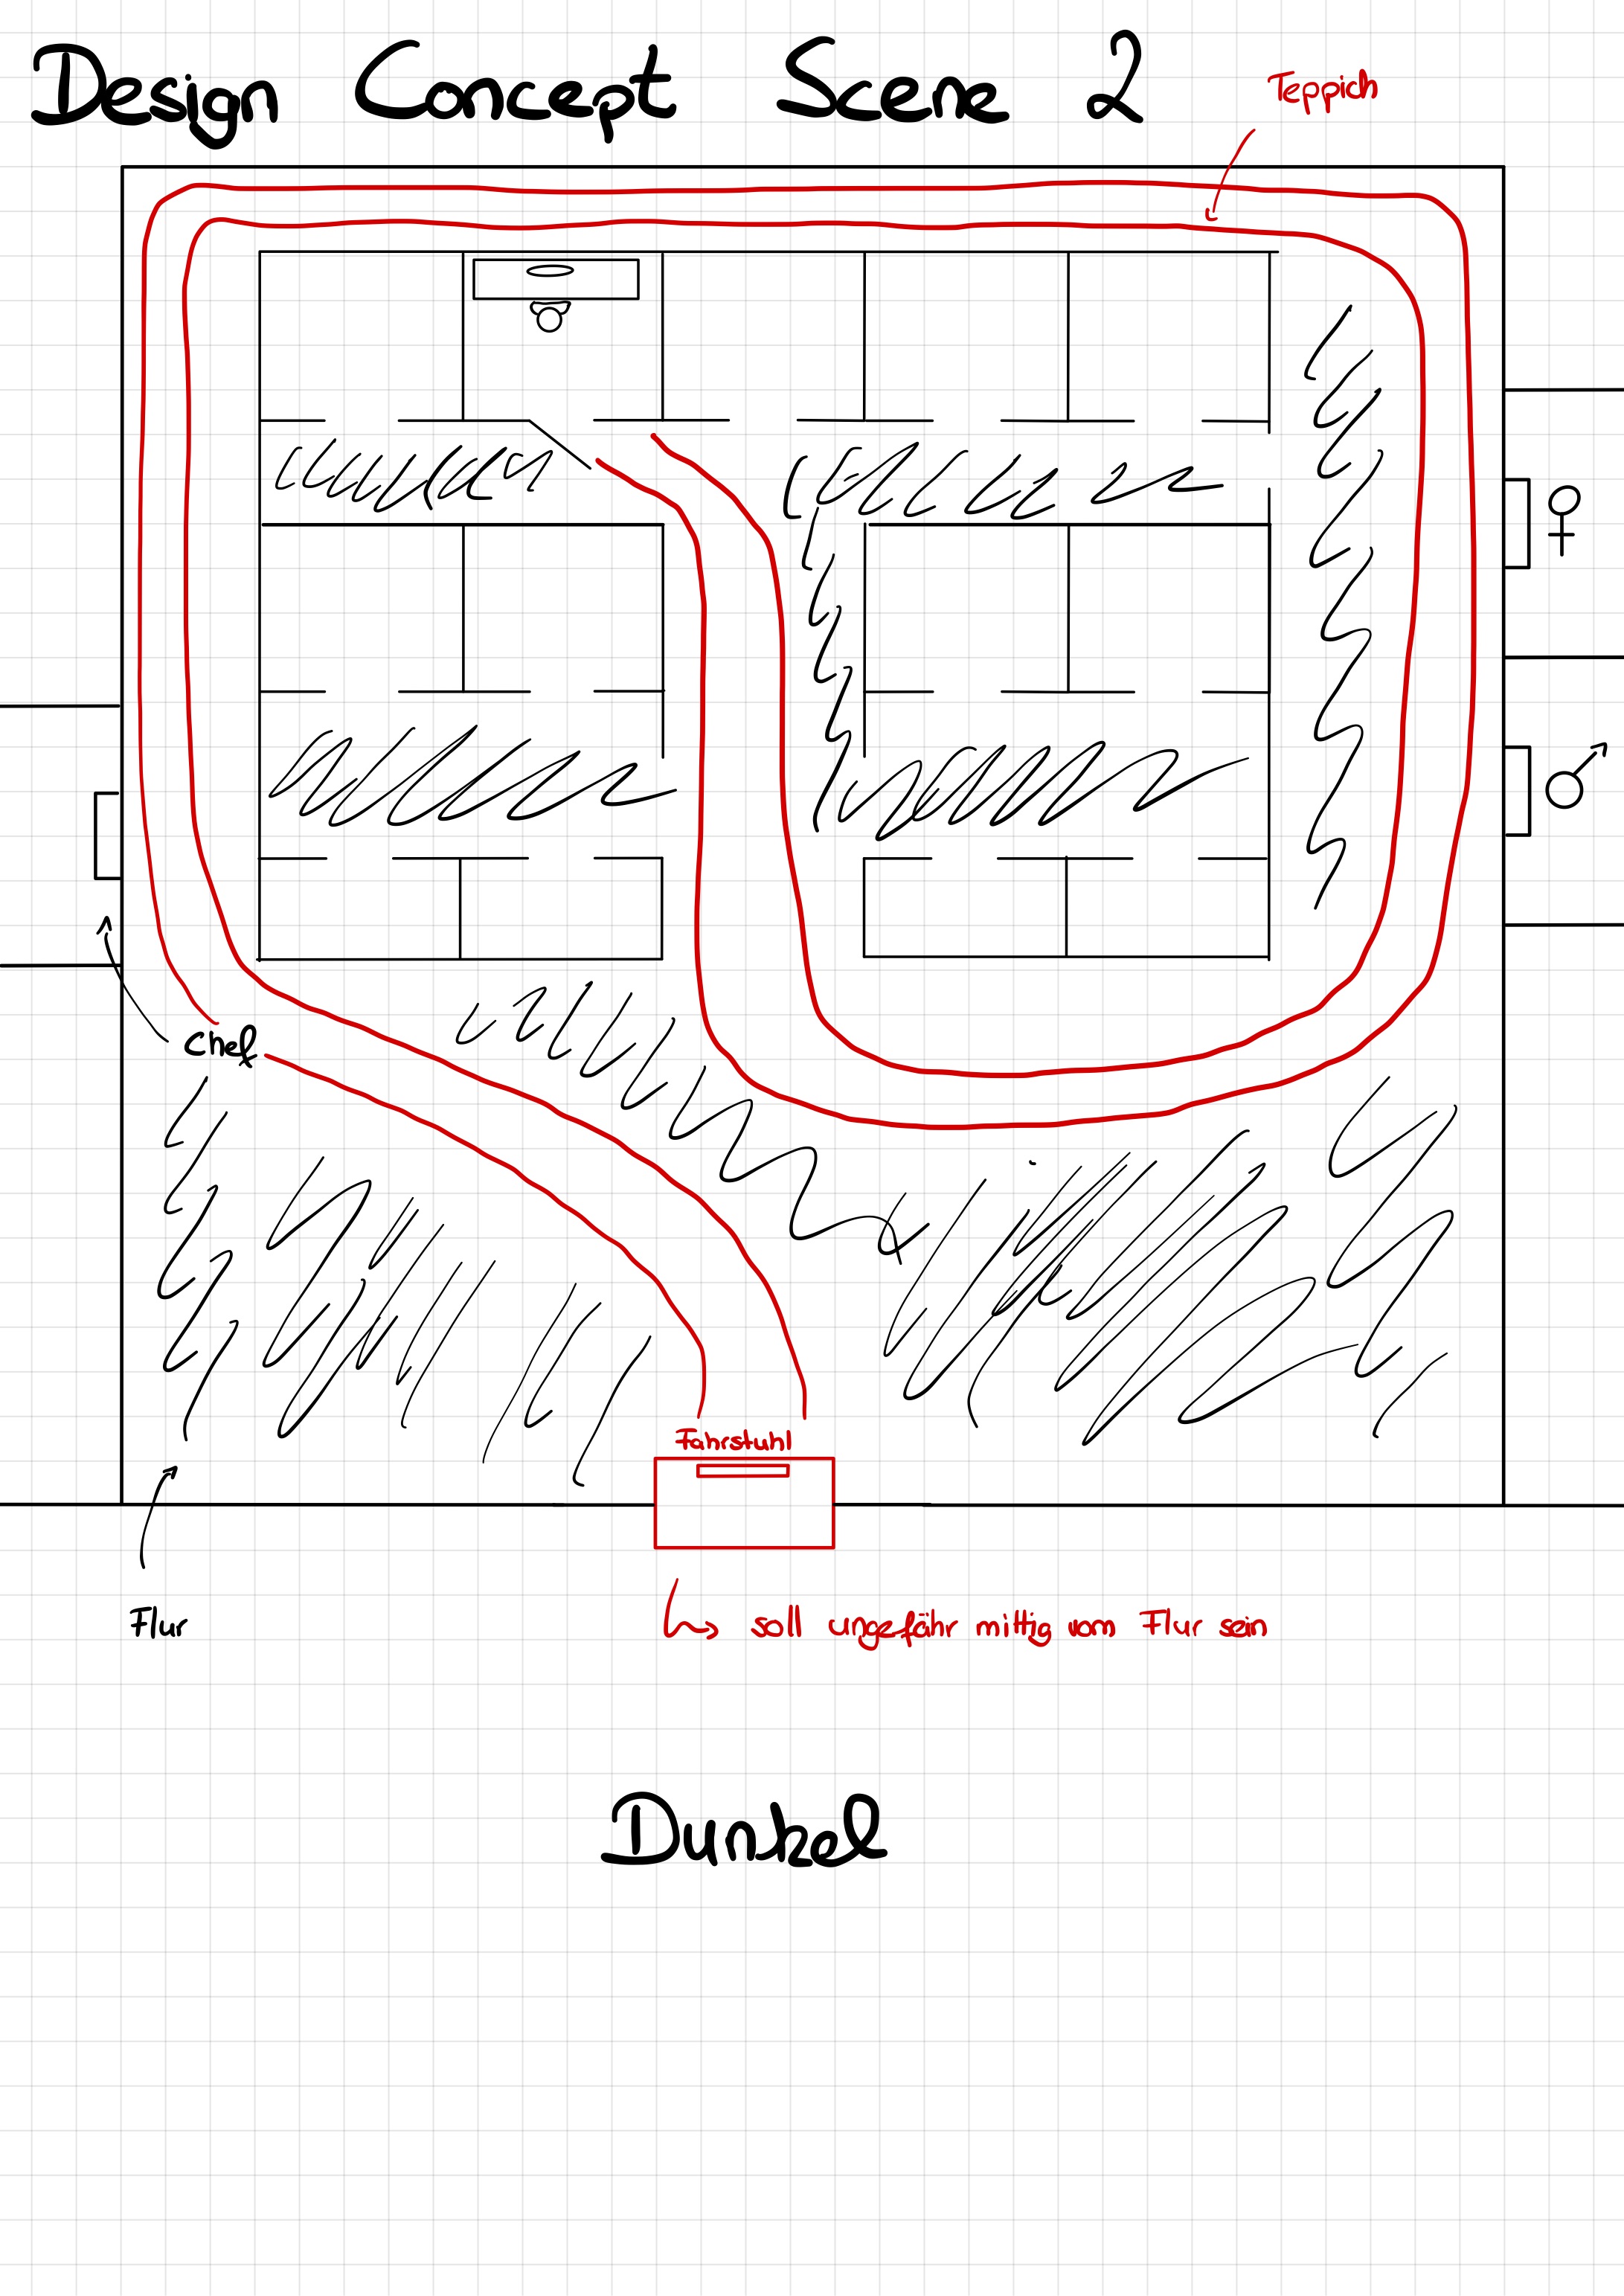 Design Concept Scene 2
Teppich
Chef
Fahrstuhl
Flur
soll ungefähr mittig vom Flur sein
Dunkel